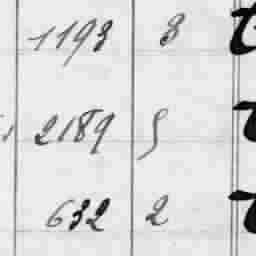 1193 3
2189 5
632 2